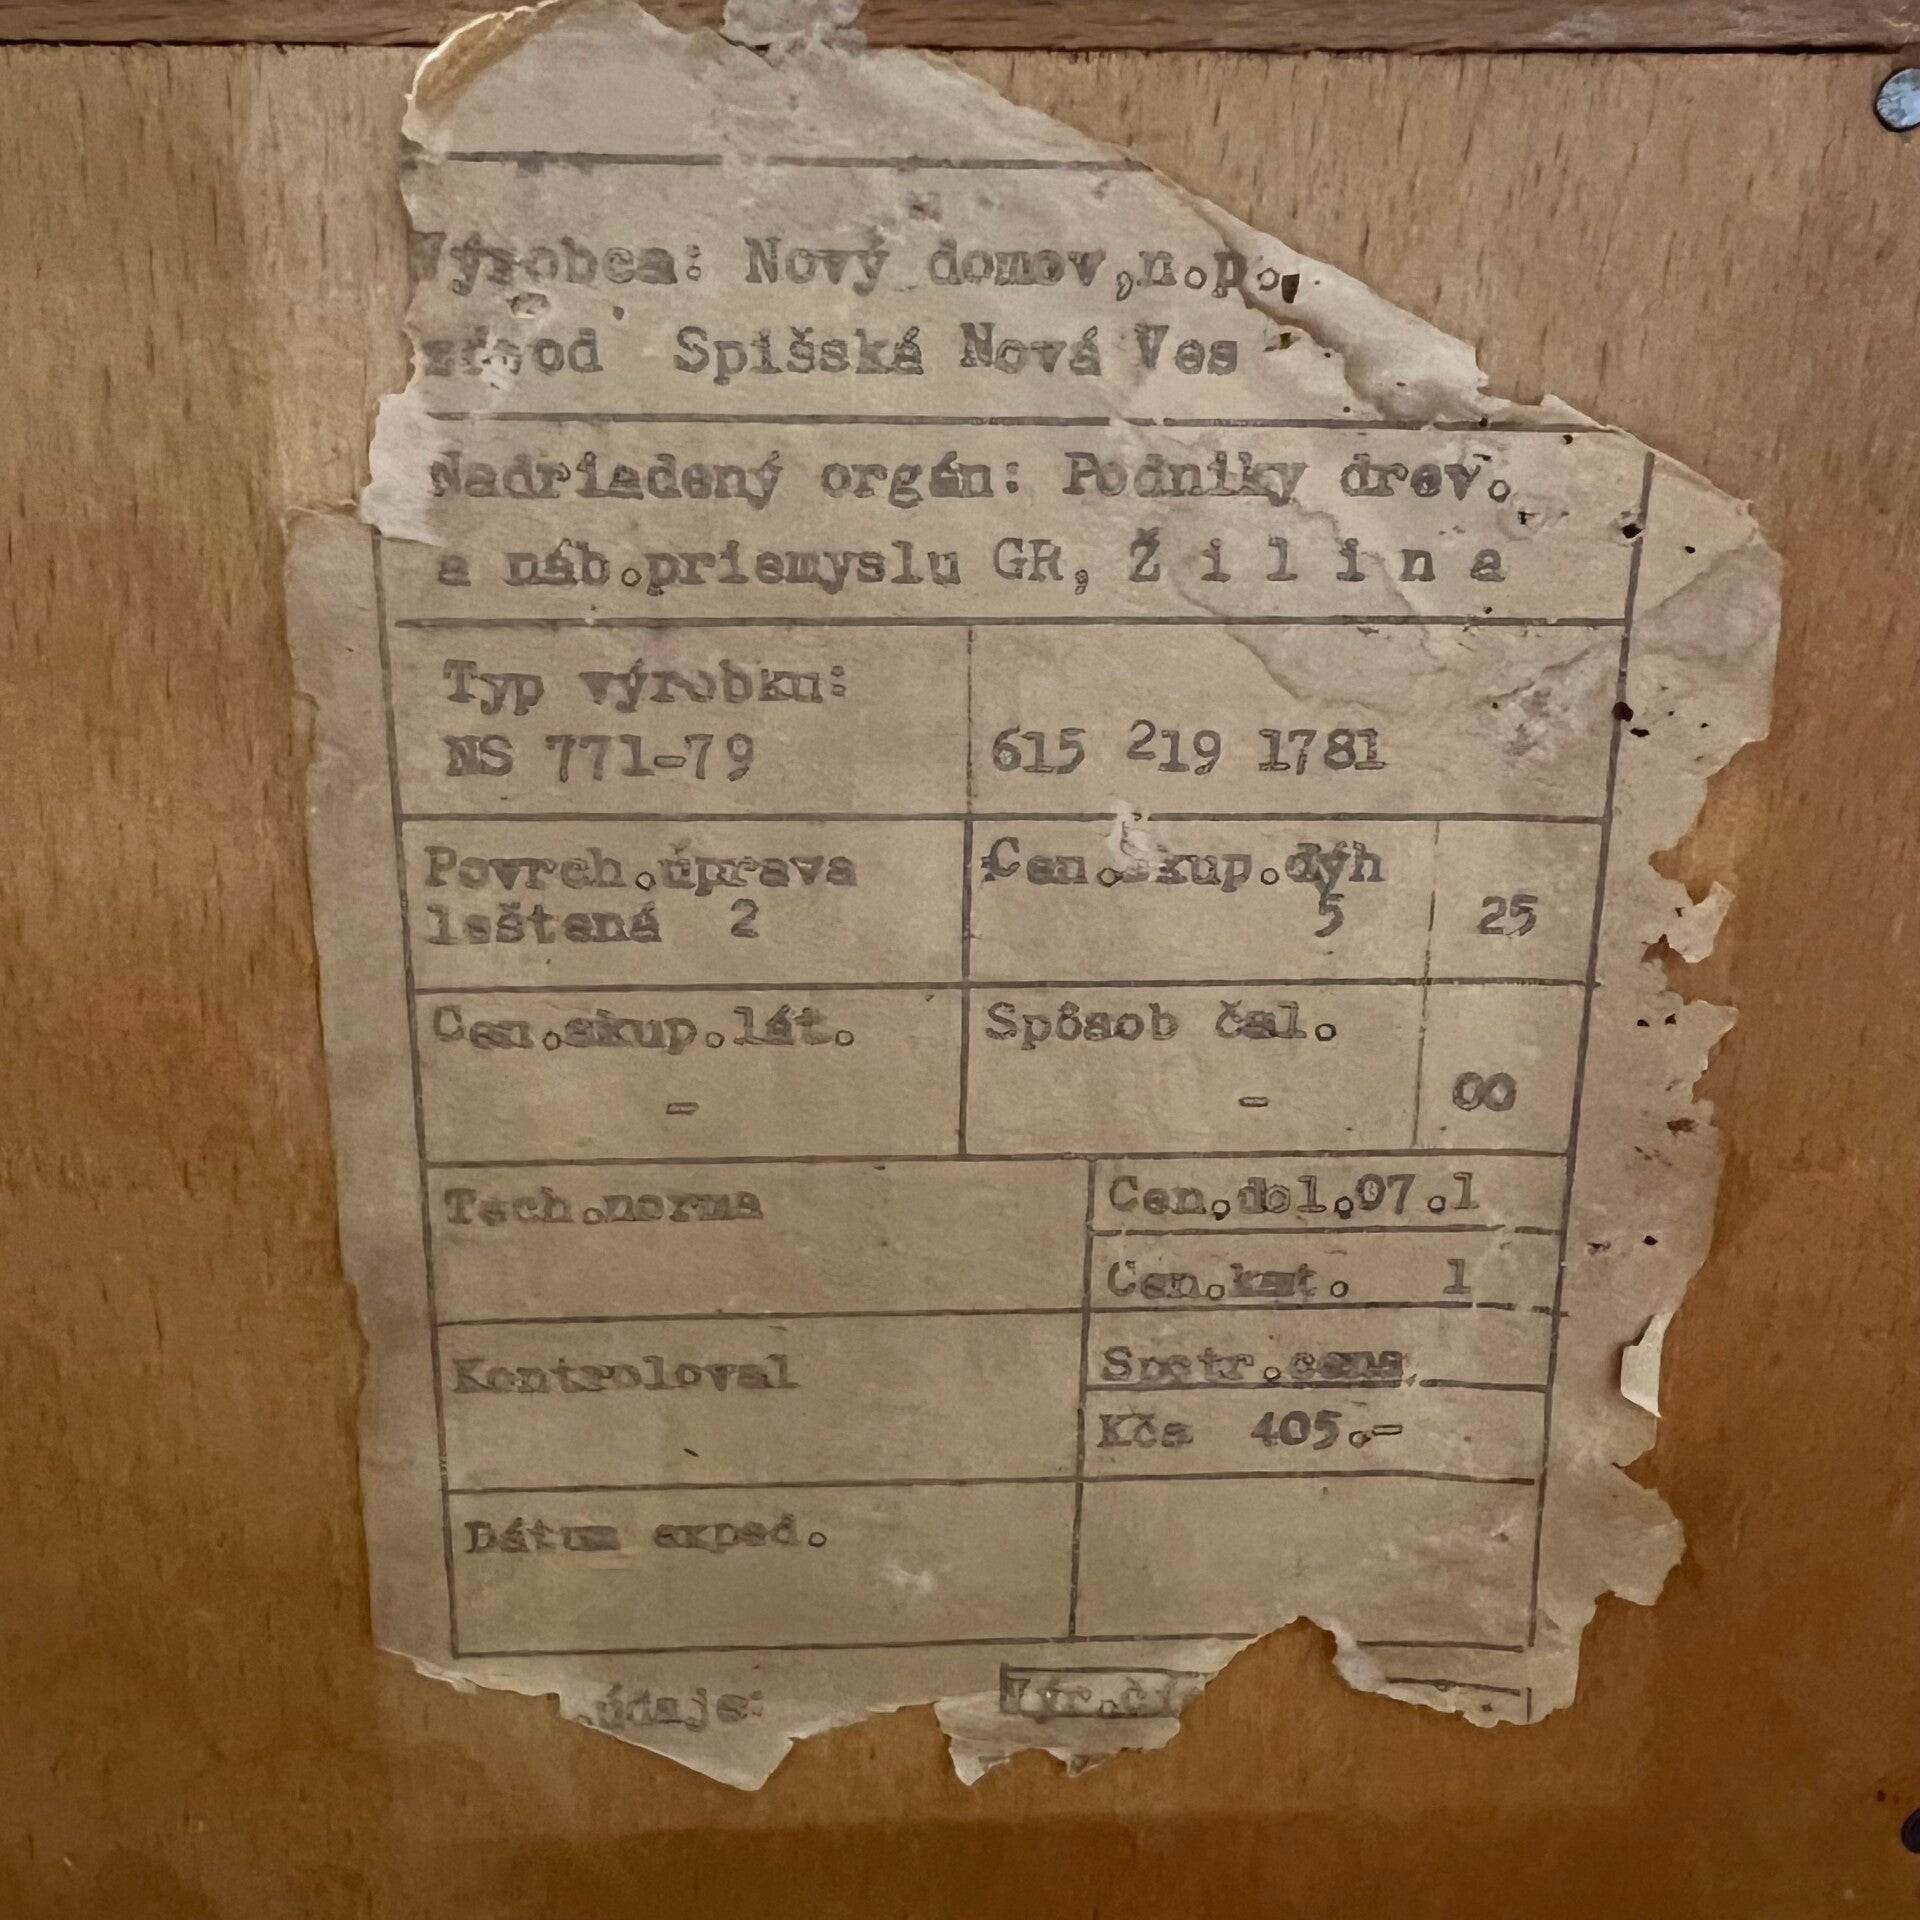 Výrobca: Nový domov,n.p.
závod Spišská Nová Ves
Nadriadený orgán: Podniky drev.
a náb.priemyslu GR, Ž i l i n a
Typ výrobku:
NS 771-79
615 219 1781
Povrch.úprava
leštená 2
Cen.skup.dýh
5
25
Cen.skup.lát.
-
Spôsob čal.
-
00
Tech.norma
Cen.dol.07.1
Cen.kat. 1
Kontroloval
Spotr.cena
Kčs 405.-
Dátum exped.
údaje:
Výr.čí